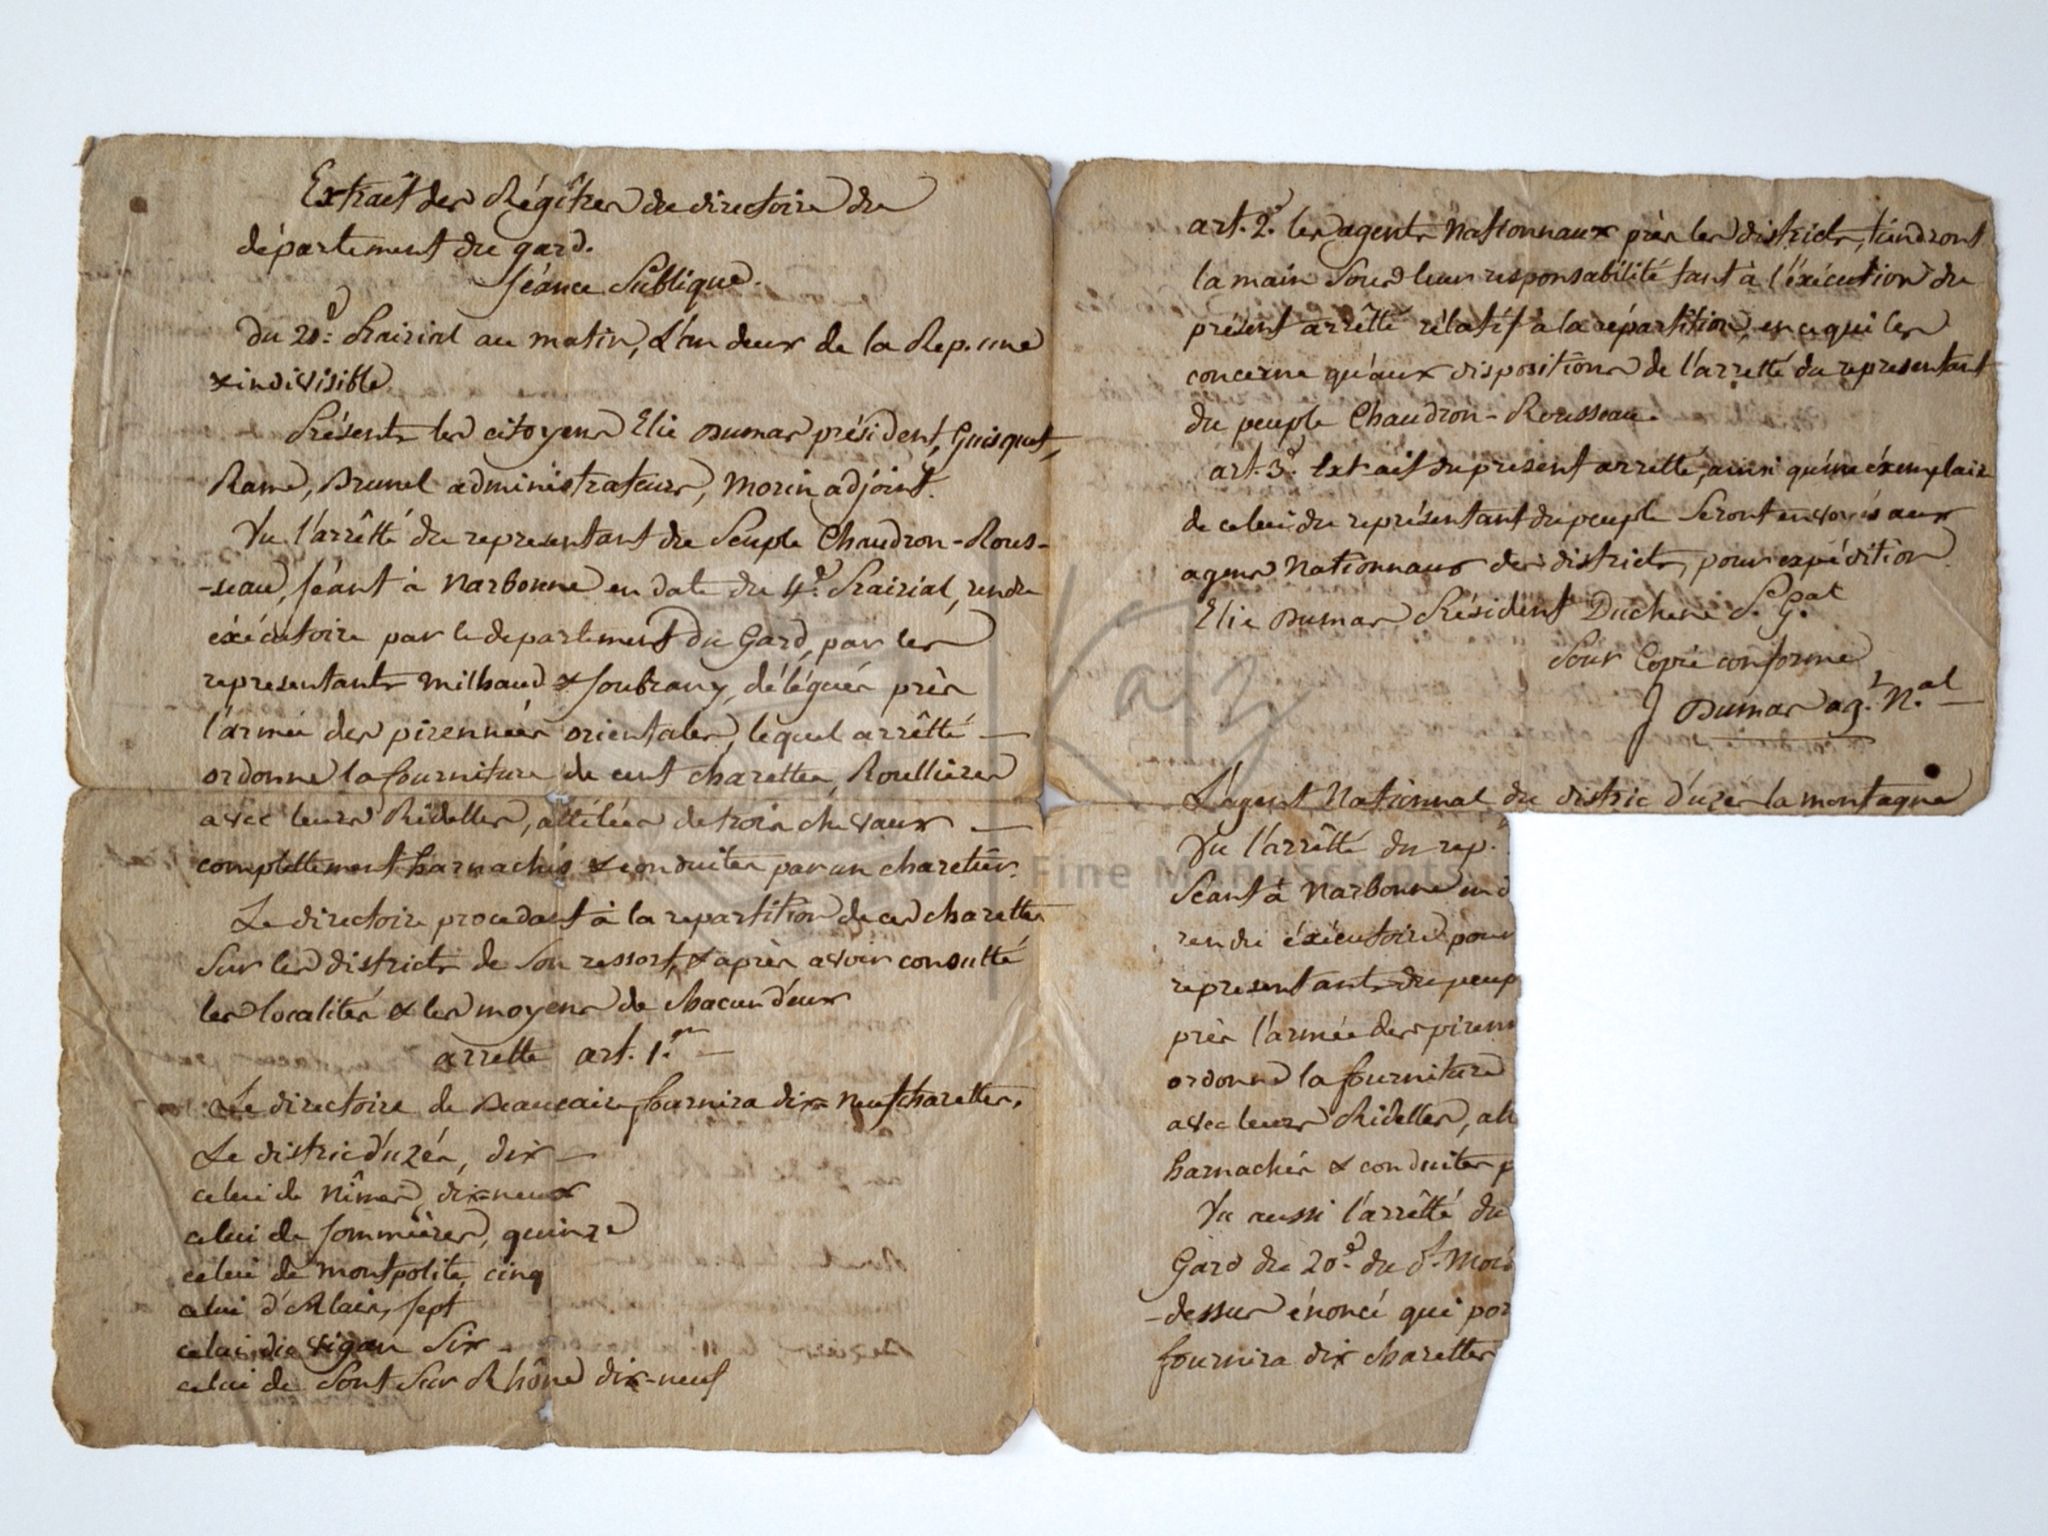 Extrait des Régîtres du directoire du
département du gard.
Séance Publique.
Du 20e. Prairial au matin, L'an deux de la Rep. une
& indivisible
Présents les citoyens Elie Dumas président, Guisquet,
Rame, Brunel administrateurs, Morin adjoint.
Vu l'arrêtté du representant du Peuple Chaudron-Rous-
-seau, séant à Narbonne en date du 4e. Prairial, rendu
éxécutoire par le departement du Gard, par les
representants Milhaud & Soubrany, délégués près
l'armée des pirennées orientales, lequel arrêtté —
ordonne la fourniture de cent charettes, Roullieres
avec leurs Ridelles, attélées de trois chevaux —
complettement harnachés & conduites par un charetier.
Le directoire procedant à la repartition de ces charettes
sur les districts de son ressort, & après avoir consulté
les localités & les moyens de chacun d'eux
arrette art. 1.er —
Le directoire de Beaucaire, fournira dix neuf charettes.
Le district d'uzés, dix —
celui de Nîmes, dix-neux
celui de Sommières, quinze
celui de montpolite, cinq
celui d'Alais, sept
celui du vigan six
celui de Pont sur Rhône dix-neuf
art. 2.e les agents Nationnaux près les districts, tiendront
la main sous leur responsabilité tant à l'éxécution du
présent arrêtté rélatif à la répartition, en ce qui les
concerne qu'aux dispositions de l'arretté du representant
du peuple Chaudron-Rousseau.
art. 3.e Extrait du present arretté, ainsi qu'un éxemplaire
de celui du représentant du peuple seront envoyés aux
agens Nationnaux des districts, pour expédition
Elie Dumas Président Duchene S. G.al
Pour Copie conforme
Dumas ag.t N.al —
L'agent Nationnal du distric d'uzès la montagne
Vu l'arrêtté du rep.
Séant à Narbonne en d
rendu éxécutoire pour
representants du peup
près l'armée des piren
ordonne la fourniture
avec leurs Ridelles, att
harnachés & conduites p
Vu aussi l'arrêtté du
Gard du 20e. du Pt. Mois
-dessus énoncé qui por
fournira dix charettes
Katz
Fine Manuscripts